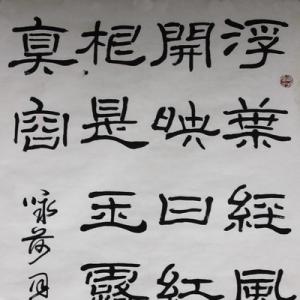 浮葉經風
開映日紅
是玉露
真容
咏荷